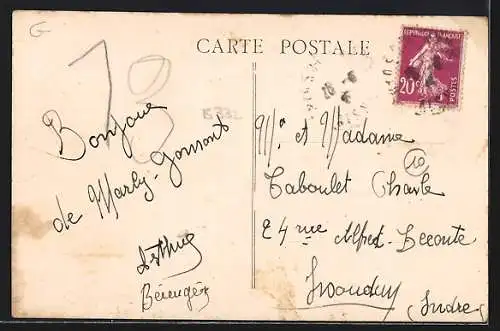 G
13
CARTE POSTALE
REPUBLIQUE FRANÇAISE
20c
POSTES
Bonjour
de Marly-Gomont
Bérenger
Mr et Madame
Taboulet Charle
24 rue Alfred-Leconte
Issoudun
(Indre)
10